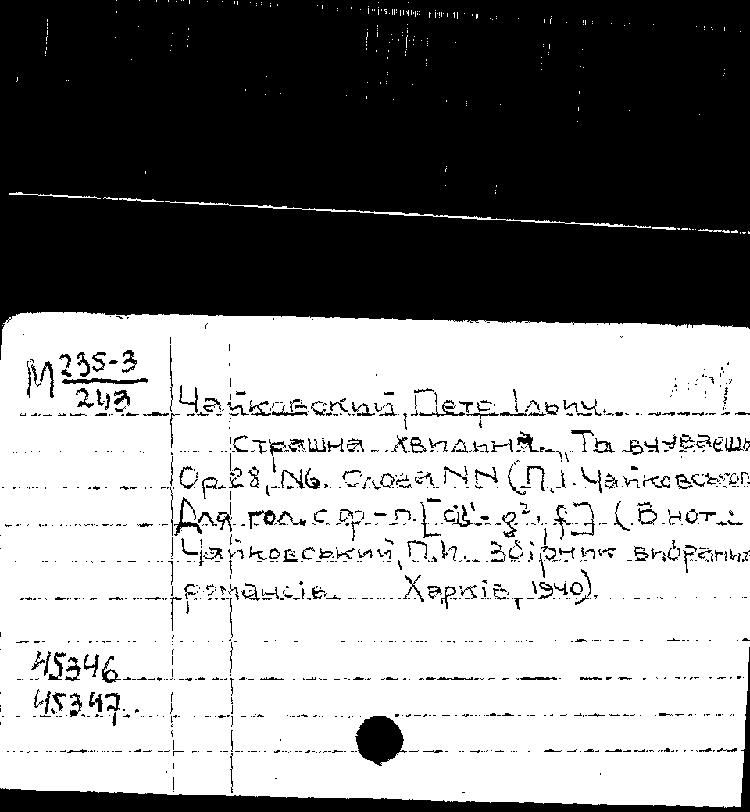 М 235-3
243
Чайковский, Петр Ільич.
Страшна хвилина. „Ти вчуваєшь
Op 28, N6. Слова NN (П.І. Чайковського
Для гол. с ф-п. [cis'- g², f] (В нот.:
Чайковський, П.И. Збірник вибрани
романсів. Харків, 1940).
45346
45347.